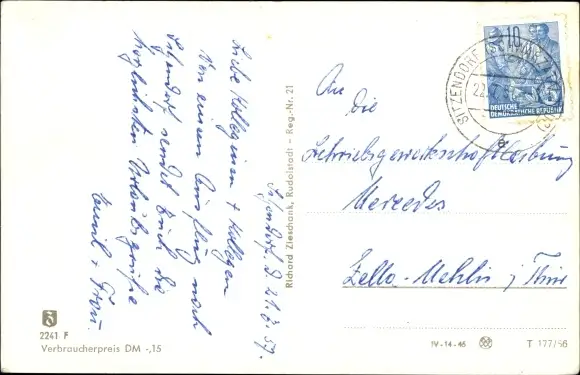 Sitzendorf, d. 21.6.57.
Liebe Kolleginen + Kollegen
Von einem Ausflug nach
Sitzendorf sendet Euch die
herzlichsten Urlaubsgrüße
Emil + Frau.
2241 F
Verbraucherpreis DM -,15
Richard Zieschank, Rudolstadt – Reg.-Nr. 21
SITZENDORF
10
DEUTSCHE
DEMOKRATISCHE REPUBLIK
An die
Betriebsgewerkschaftsleitung
Mercedes
Zella-Mehlis i/Thür
IV-14-45
T 177/56